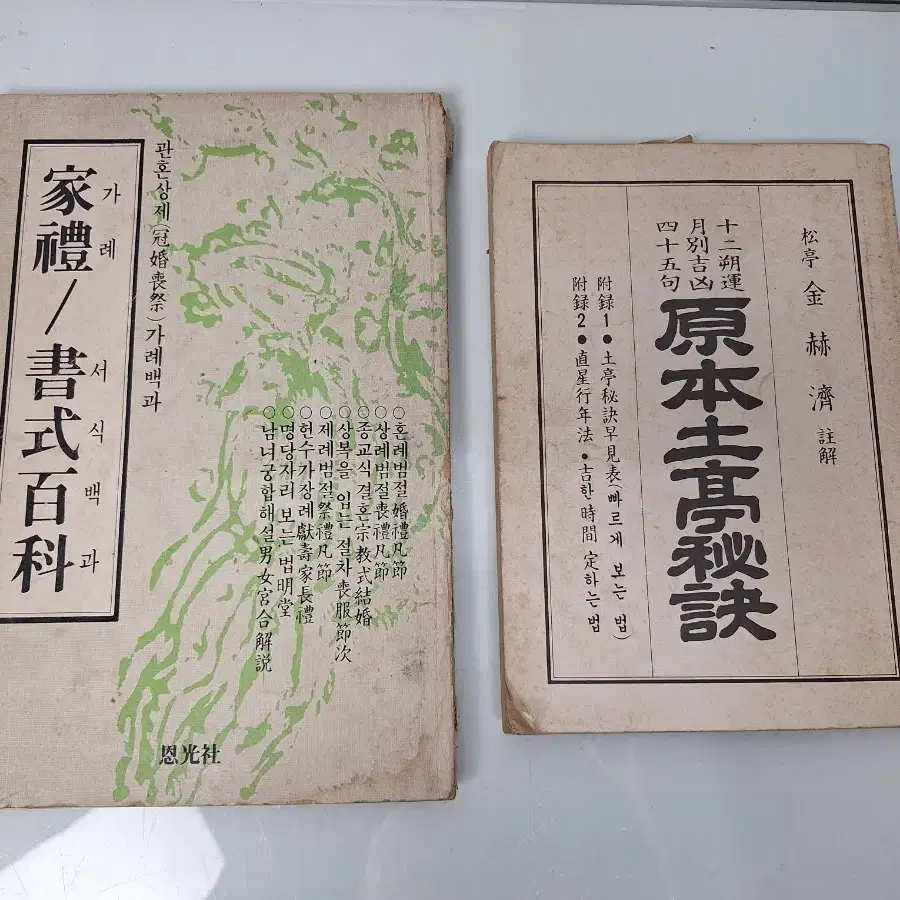 家禮/書式百科
가례 서식백과
관혼상제(冠婚喪祭)가례백과
○혼례범절婚禮凡節
○상례범절喪禮凡節
○종교식 결혼宗教式結婚
○상복을 입는 절차喪服節次
○제례범절祭禮凡節
○헌수가장례獻壽家長禮
○명당자리 보는 법明堂
○남녀궁합해설男女宮合解説
恩光社
松亭 金赫濟 註解
十二朔運
月別吉凶
四十五句
原本土亭秘訣
附録1 ● 土亭秘訣早見表(빠르게 보는 법)
附録2 ● 直星行年法 • 吉한 時間 定하는 법